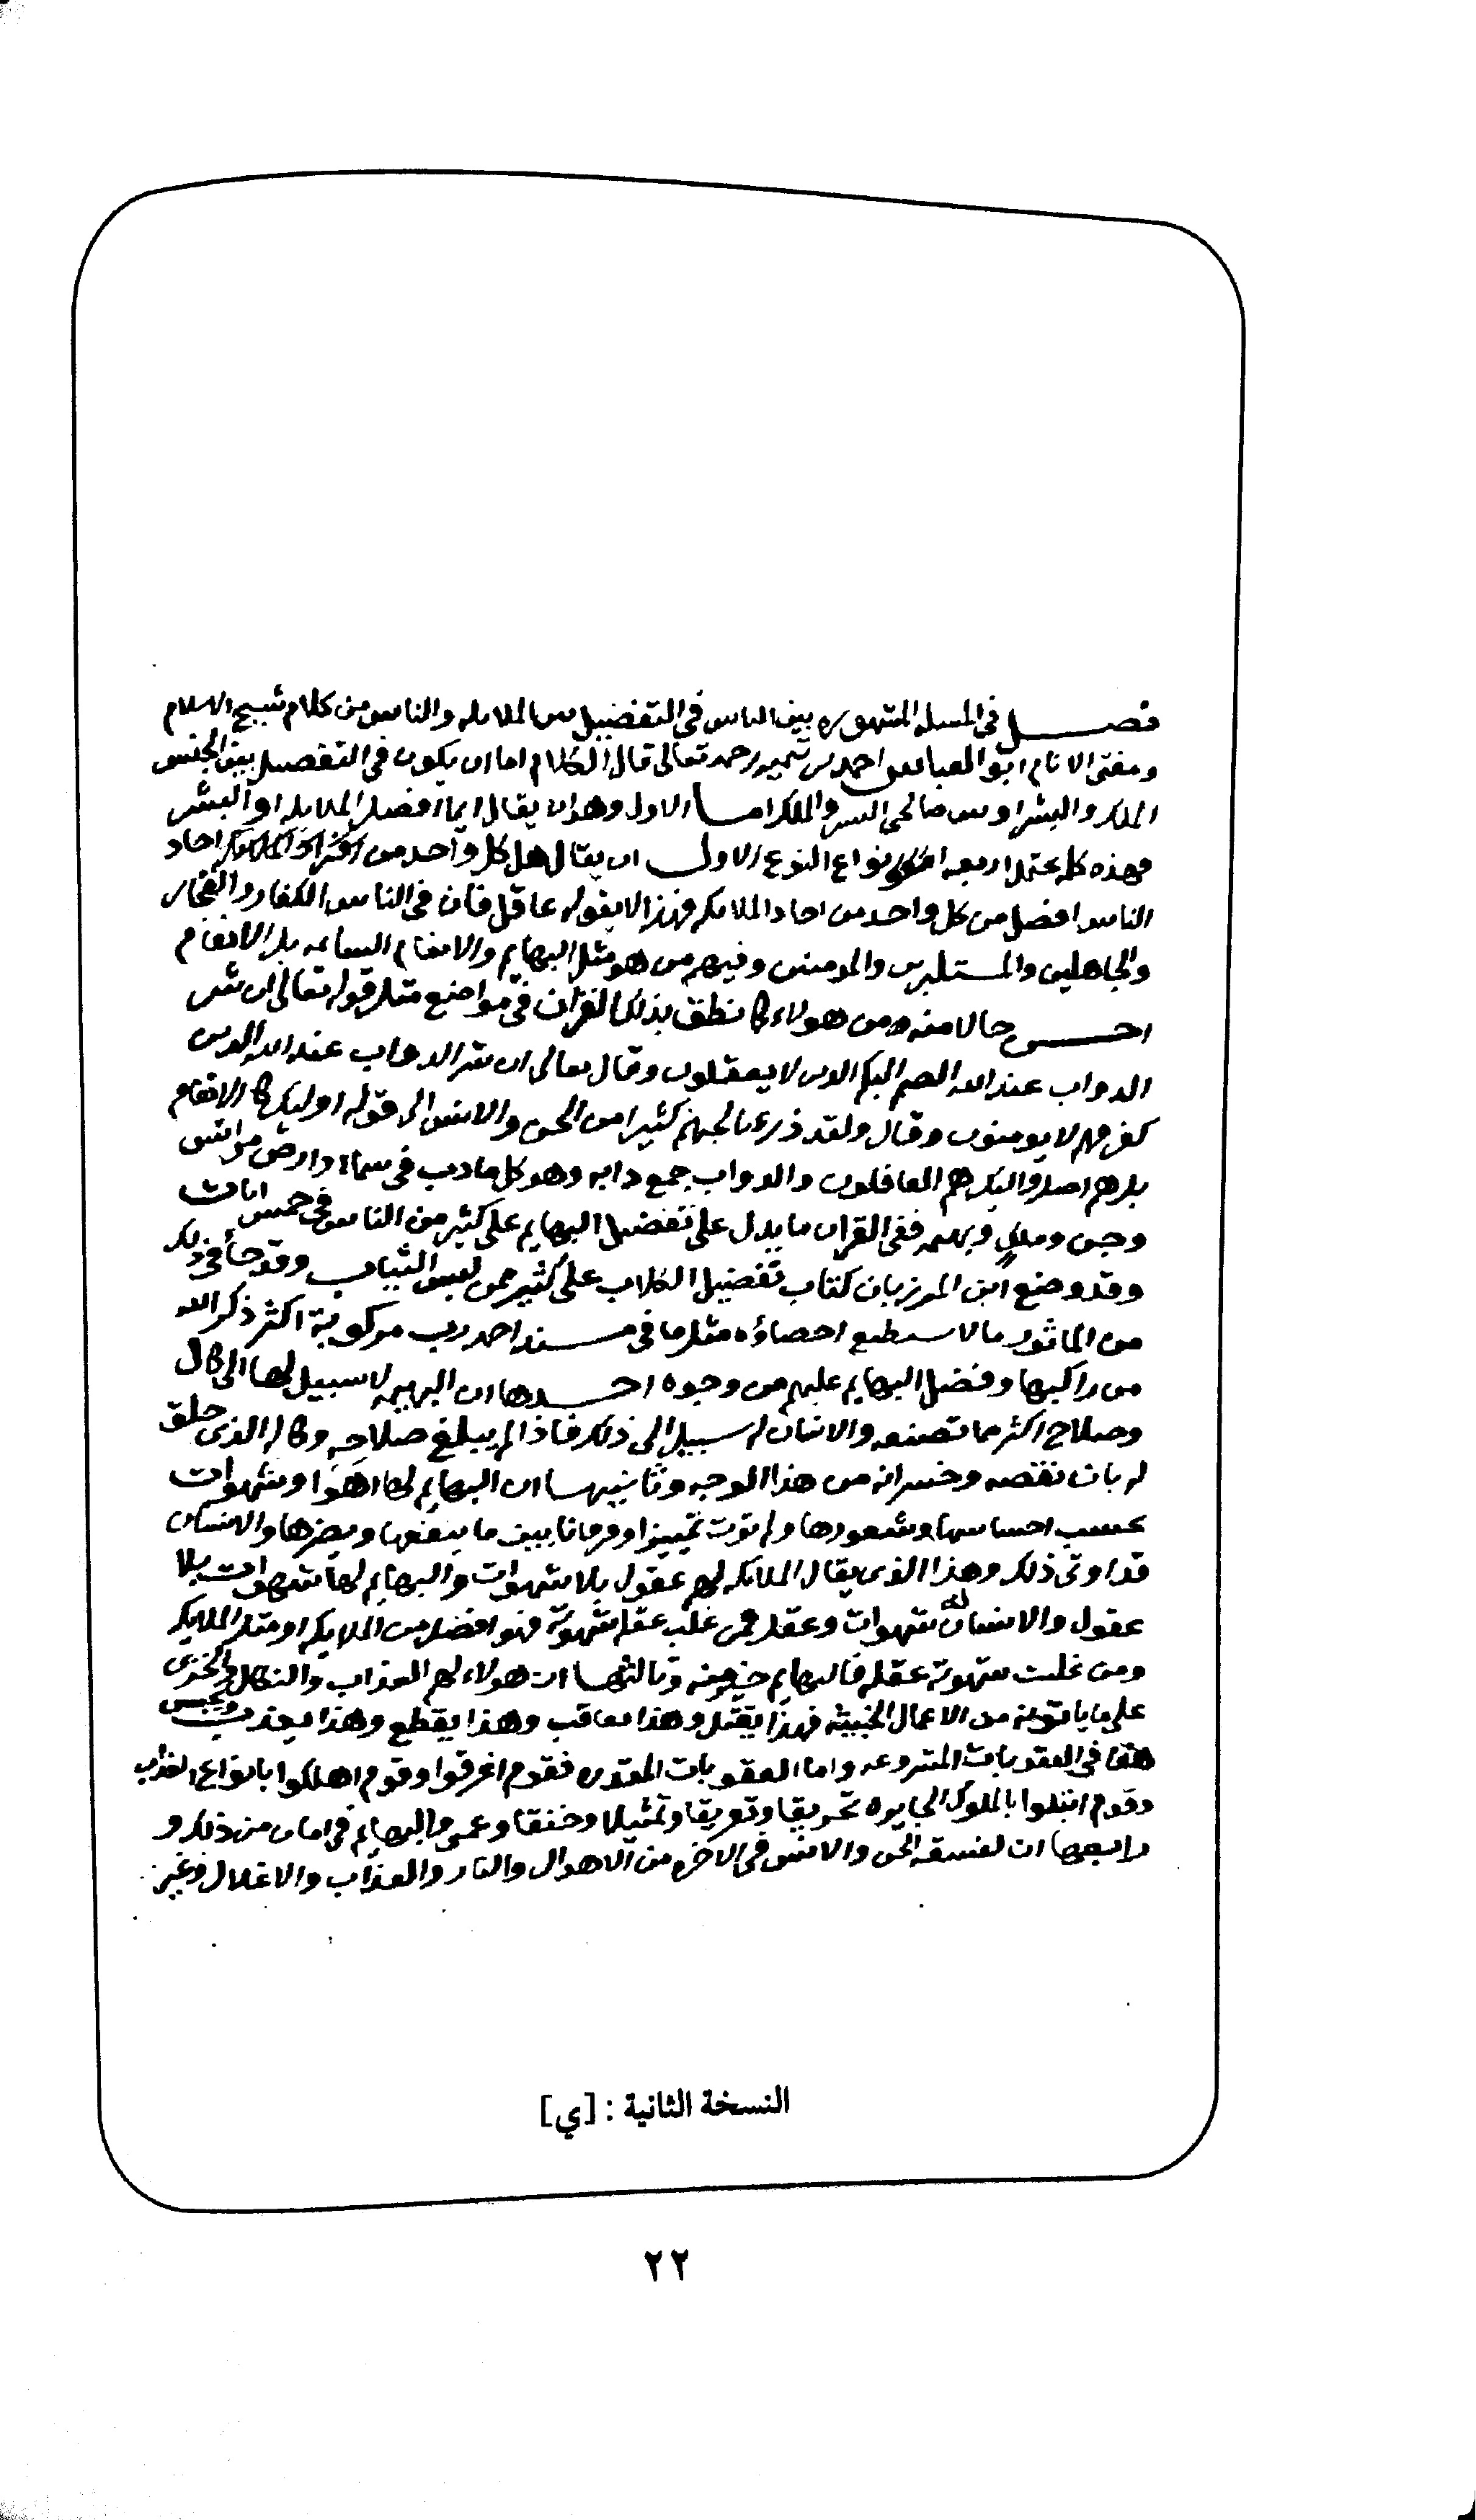 فصل في المسله المشهوره بين الناس في التفضيل بين الملايكه والناس من كلام شيخ الاسلام
ومفتي الانام ابو العباس احمد بن تيميه رحمه تعالى قال الكلام اما ان يكون في التفضيل بين الجنس
الملك والبشر او بين صالحي البشر والملك اما الاول وهو ان يقال ايما افضل الملايكه او البشر
فهذه كله يحتمل اربعه انواع النوع الاول ان يقال هل كل واحد من احاد
الناس افضل من كل واحد من احاد الملايكه فهذا لا يقوله عاقل فان في الناس الكفار والفجار
والجاهلين والمستكبرين والمومنين وفيهم من هو مثل البهايم والانعام السايمه بل الانعام
احسن حالا منه من هولاء كما نطق بذلك القران في مواضع مثل قوله تعالى ان شر
الدواب عند الله الصم البكم الذين لا يعقلون وقال تعالى ان شر الدواب عند الله الذين
كفر فهم لا يومنون وقال ولقد ذرءنا لجهنم كثيرا من الجن والانس الى قوله اوليك كالانعام
بل هم اضل اوليك هم الغافلون والدواب جمع دابه وهو كل ما دب في سماء وارض من انس
وجن وملك وبهيمه ففي القران ما يدل على تفضيل البهايم على كثير من الناس في خمس ايات
وقد وضع ابن المرزبان كتاب تفضيل الكلاب على كثير ممن لبس الثياب وقد جاء في ذلك
من الماثور ما لا نستطيع احصاؤه مثل ما في مسند احمد رب مركوبة اكثر ذكر الله
من راكبها وفضل البهايم عليهم من وجوه احدها ان البهيمه لا سبيل لها الى كمال
وصلاح اكثر مما تصنعه والانسان له سبيل الى ذلك فاذا لم يبلغ صلاحه وكماله الذي خلق
له بان نقصه وخسرانه من هذا الوجه وثانيها ان البهايم لها اهوا وشهوات
بحسب احساسها وشعورها ولم توت تمييزا وفرقانا بين ما ينفعها ويضرها والانسان
قد اوتي ذلك وهذا الذي يقال الملايكه لهم عقول بلا شهوات والبهايم لها شهوات بلا
عقول والانسان له شهوات وعقل فمن غلب عقله شهوته فهو افضل من الملايكه او مثل الملايكه
ومن غلبت شهوته عقله فالبهايم خير منه وثالثها ان هولاء لهم العذاب والنكال والخزي
على ما ياتونه من الاعمال الخبيثه فهذا يقتل وهذا يعاقب وهذا يقطع وهذا يعذب ويحبس
هذا في العقوبات المشروعه واما العقوبات المقدره فقوم اغرقوا وقوم اهلكوا بانواع العذاب
وقوم ابتلوا بالملوك الجايره تحريقا وتغريقا وتمثيلا وخنقا وعمى والبهايم في امان من ذلك و
رابعها ان لفسقه الجن والانس في الاخره من الاهوال والنار والعذاب والاغلال وغير
النسخة الثانية : [ي]
٢٢